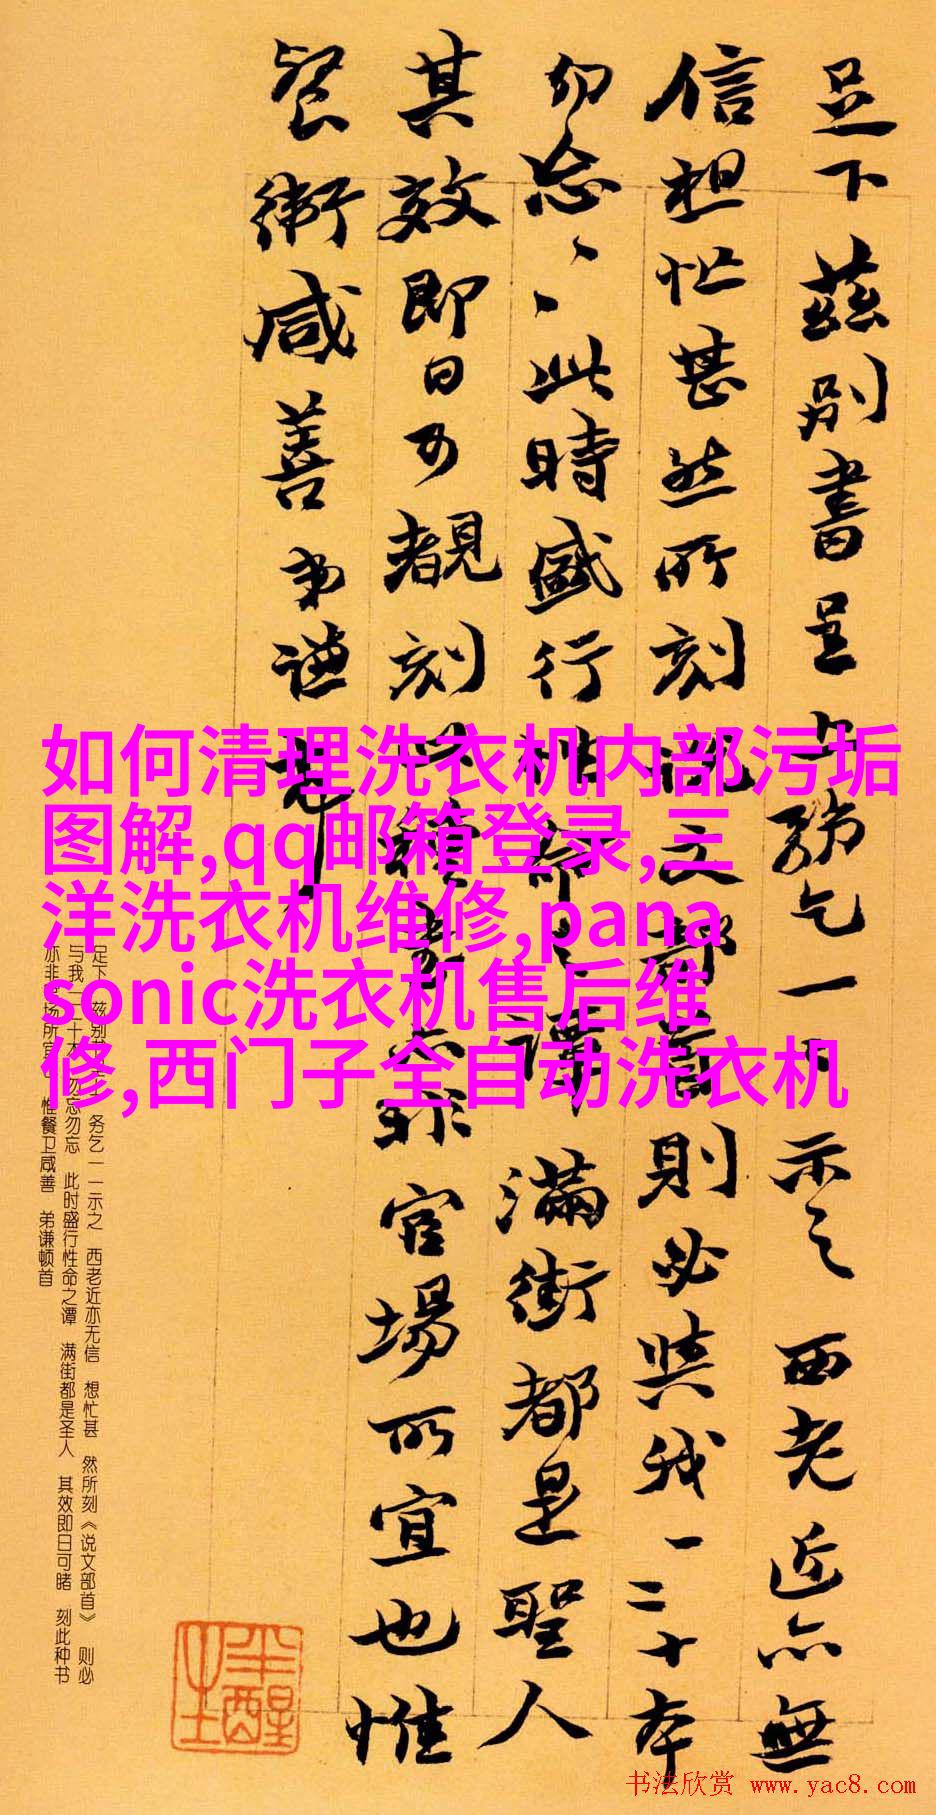 足下茲別書呈上務乞一一示之西老近亦無
信想忙甚然所刻說文部首則必與我一二十本
勿忘、、此時盛行性命之譚滿街都是聖人
其效即日可覩刻此種書亦非官場所宜也惟
餐衛咸善弟謙頓首
如何清理洗衣机内部污垢
图解,qq邮箱登录,三
洋洗衣机维修,pana
sonic洗衣机售后维
修,西门子全自动洗衣机
足下 兹别书呈上 务乞一一示之 西老近亦无信 想忙甚 然所刻《说文部首》 则必
与我一二十本 勿忘勿忘 此时盛行性命之谭 满街都是圣人 其效即日可睹 刻此种书
亦非官场所宜也 惟餐卫咸善 弟谦顿首
书法欣赏 www.yac8.com